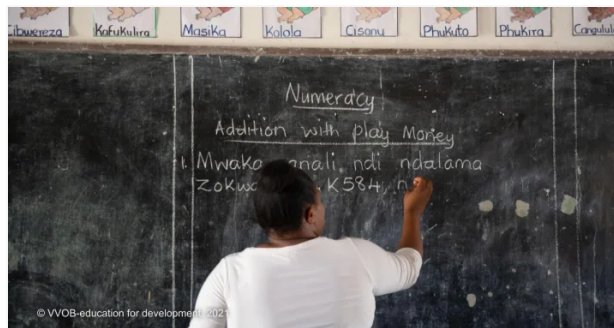 Cibwereza Kafukulira Masika Kolola Cisanu Phukuto Phukira
Numeracy
Addition with play Money
1. Mwaka anali ndi ndalama
K584, n
© VVOB-education for development 2021